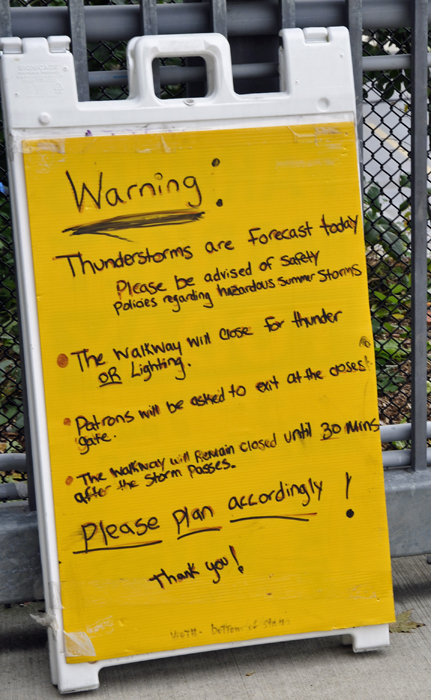 Warning:
Thunderstorms are Forecast today
Please be advised of Safety
policies regarding hazardous Summer Storms
• The Walkway will close for thunder
OR Lighting.
• Patrons will be asked to exit at the closest
gate.
• The Walkway will Remain closed until 30 mins
after the Storm Passes.
Please plan accordingly!
Thank you!
bottom of